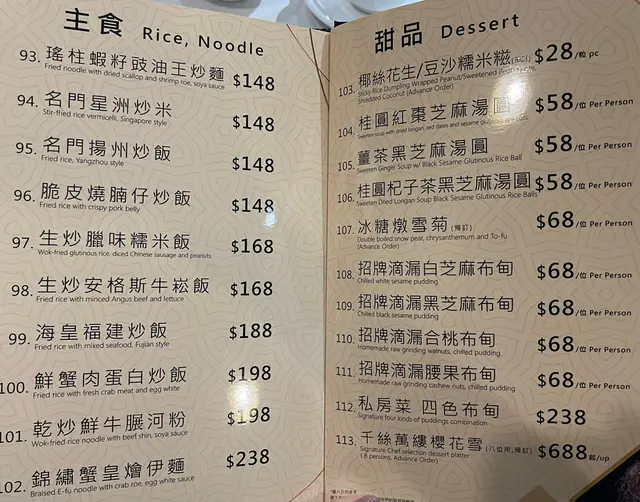 主食 Rice, Noodle
93. 瑤柱蝦籽豉油王炒麵 $148
Fried noodle with dried scallop and shrimp roe, soya sauce
94. 名門星洲炒米 $148
Stir-fried rice vermicelli, Singapore style
95. 名門揚州炒飯 $148
Fried rice, Yangzhou style
96. 脆皮燒腩仔炒飯 $148
Fried rice with crispy pork belly
97. 生炒臘味糯米飯 $168
Wok-fried glutinous rice, diced Chinese sausage and peanuts
98. 生炒安格斯牛崧飯 $168
Fried rice with minced Angus beef and lettuce
99. 海皇福建炒飯 $188
Fried rice with mixed seafood, Fujian style
100. 鮮蟹肉蛋白炒飯 $198
Fried rice with fresh crab meat and egg white
101. 乾炒鮮牛𦟌河粉 $198
Wok-fried rice noodle with beef shin, soya sauce
102. 錦繡蟹皇燴伊麵 $238
Braised E-fu noodle with crab roe, egg white sauce
甜品 Dessert
103. 椰絲花生/豆沙糯米糍 $28/粒 pc
Sticky Rice Dumpling Wrapped Peanut/Sweetened Bean
Shredded Coconut (Advance Order)
104. 桂圓紅棗芝麻湯圓 $58/位 Per Person
Sweeten soup with dried longan, red dates and sesame
105. 薑茶黑芝麻湯圓 $58/位 Per Person
Sweeten Ginger Soup w/ Black Sesame Glutinous Rice Ball
106. 桂圓杞子茶黑芝麻湯圓 $58/位 Per Person
Sweeten Dried Longan Soup Black Sesame Glutinous Rice Balls
107. 冰糖燉雪菊 (預訂) $68/位 Per Person
Double boiled snow pear, chrysanthemum and To-fu
(Advance Order)
108. 招牌滴漏白芝麻布甸 $68/位 Per Person
Chilled white sesame pudding
109. 招牌滴漏黑芝麻布甸 $68/位 Per Person
Chilled black sesame pudding
110. 招牌滴漏合桃布甸 $68/位 Per Person
Homemade raw grinding walnuts, chilled pudding
111. 招牌滴漏腰果布甸 $68/位 Per Person
Homemade raw grinding cashew nuts, chilled pudding
112. 私房菜 四色布甸 $238
Signature four kinds of puddings combination
113. 千絲萬縷櫻花雪 (八位用,預訂) $688起/up
Signature Chef selection dessert platter
( 8 persons, Advance Order)